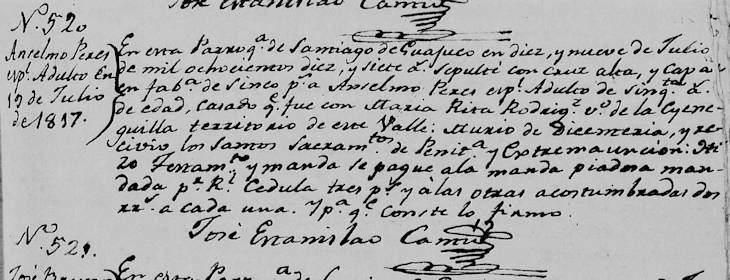 José Estanislao Camu
N.º 520
Anselmo Peres
esp.l Adulto en
19 de Julio
de 1817.
En esta Parroq.a de Santiago de Guajuco en diez, y nueve de Julio
de mil ochocientos diez, y siete a.s sepulté con Cruz alta, y Capa
en fab.a de sinco p.s a Anselmo Peres esp.l Adulto de sinq.ta a.s
de edad, casado q.e fue con Maria Rita Rodrig.z v.o de la Cyene-
guilla territorio de este Valle: Murio de Dicenteria, y re-
civio los Santos Sacram.tos de Penit.a y Extremauncion: Hi-
zo Testam.to y manda se pague a la manda piadosa man-
dada p.r R.l Cedula tres p.s y a las otras acostumbradas dos
rr.s a cada una. Y p.a q.e Conste lo firmo.
José Estanislao Camu
N.º 521.
José
En esta Parr.a de